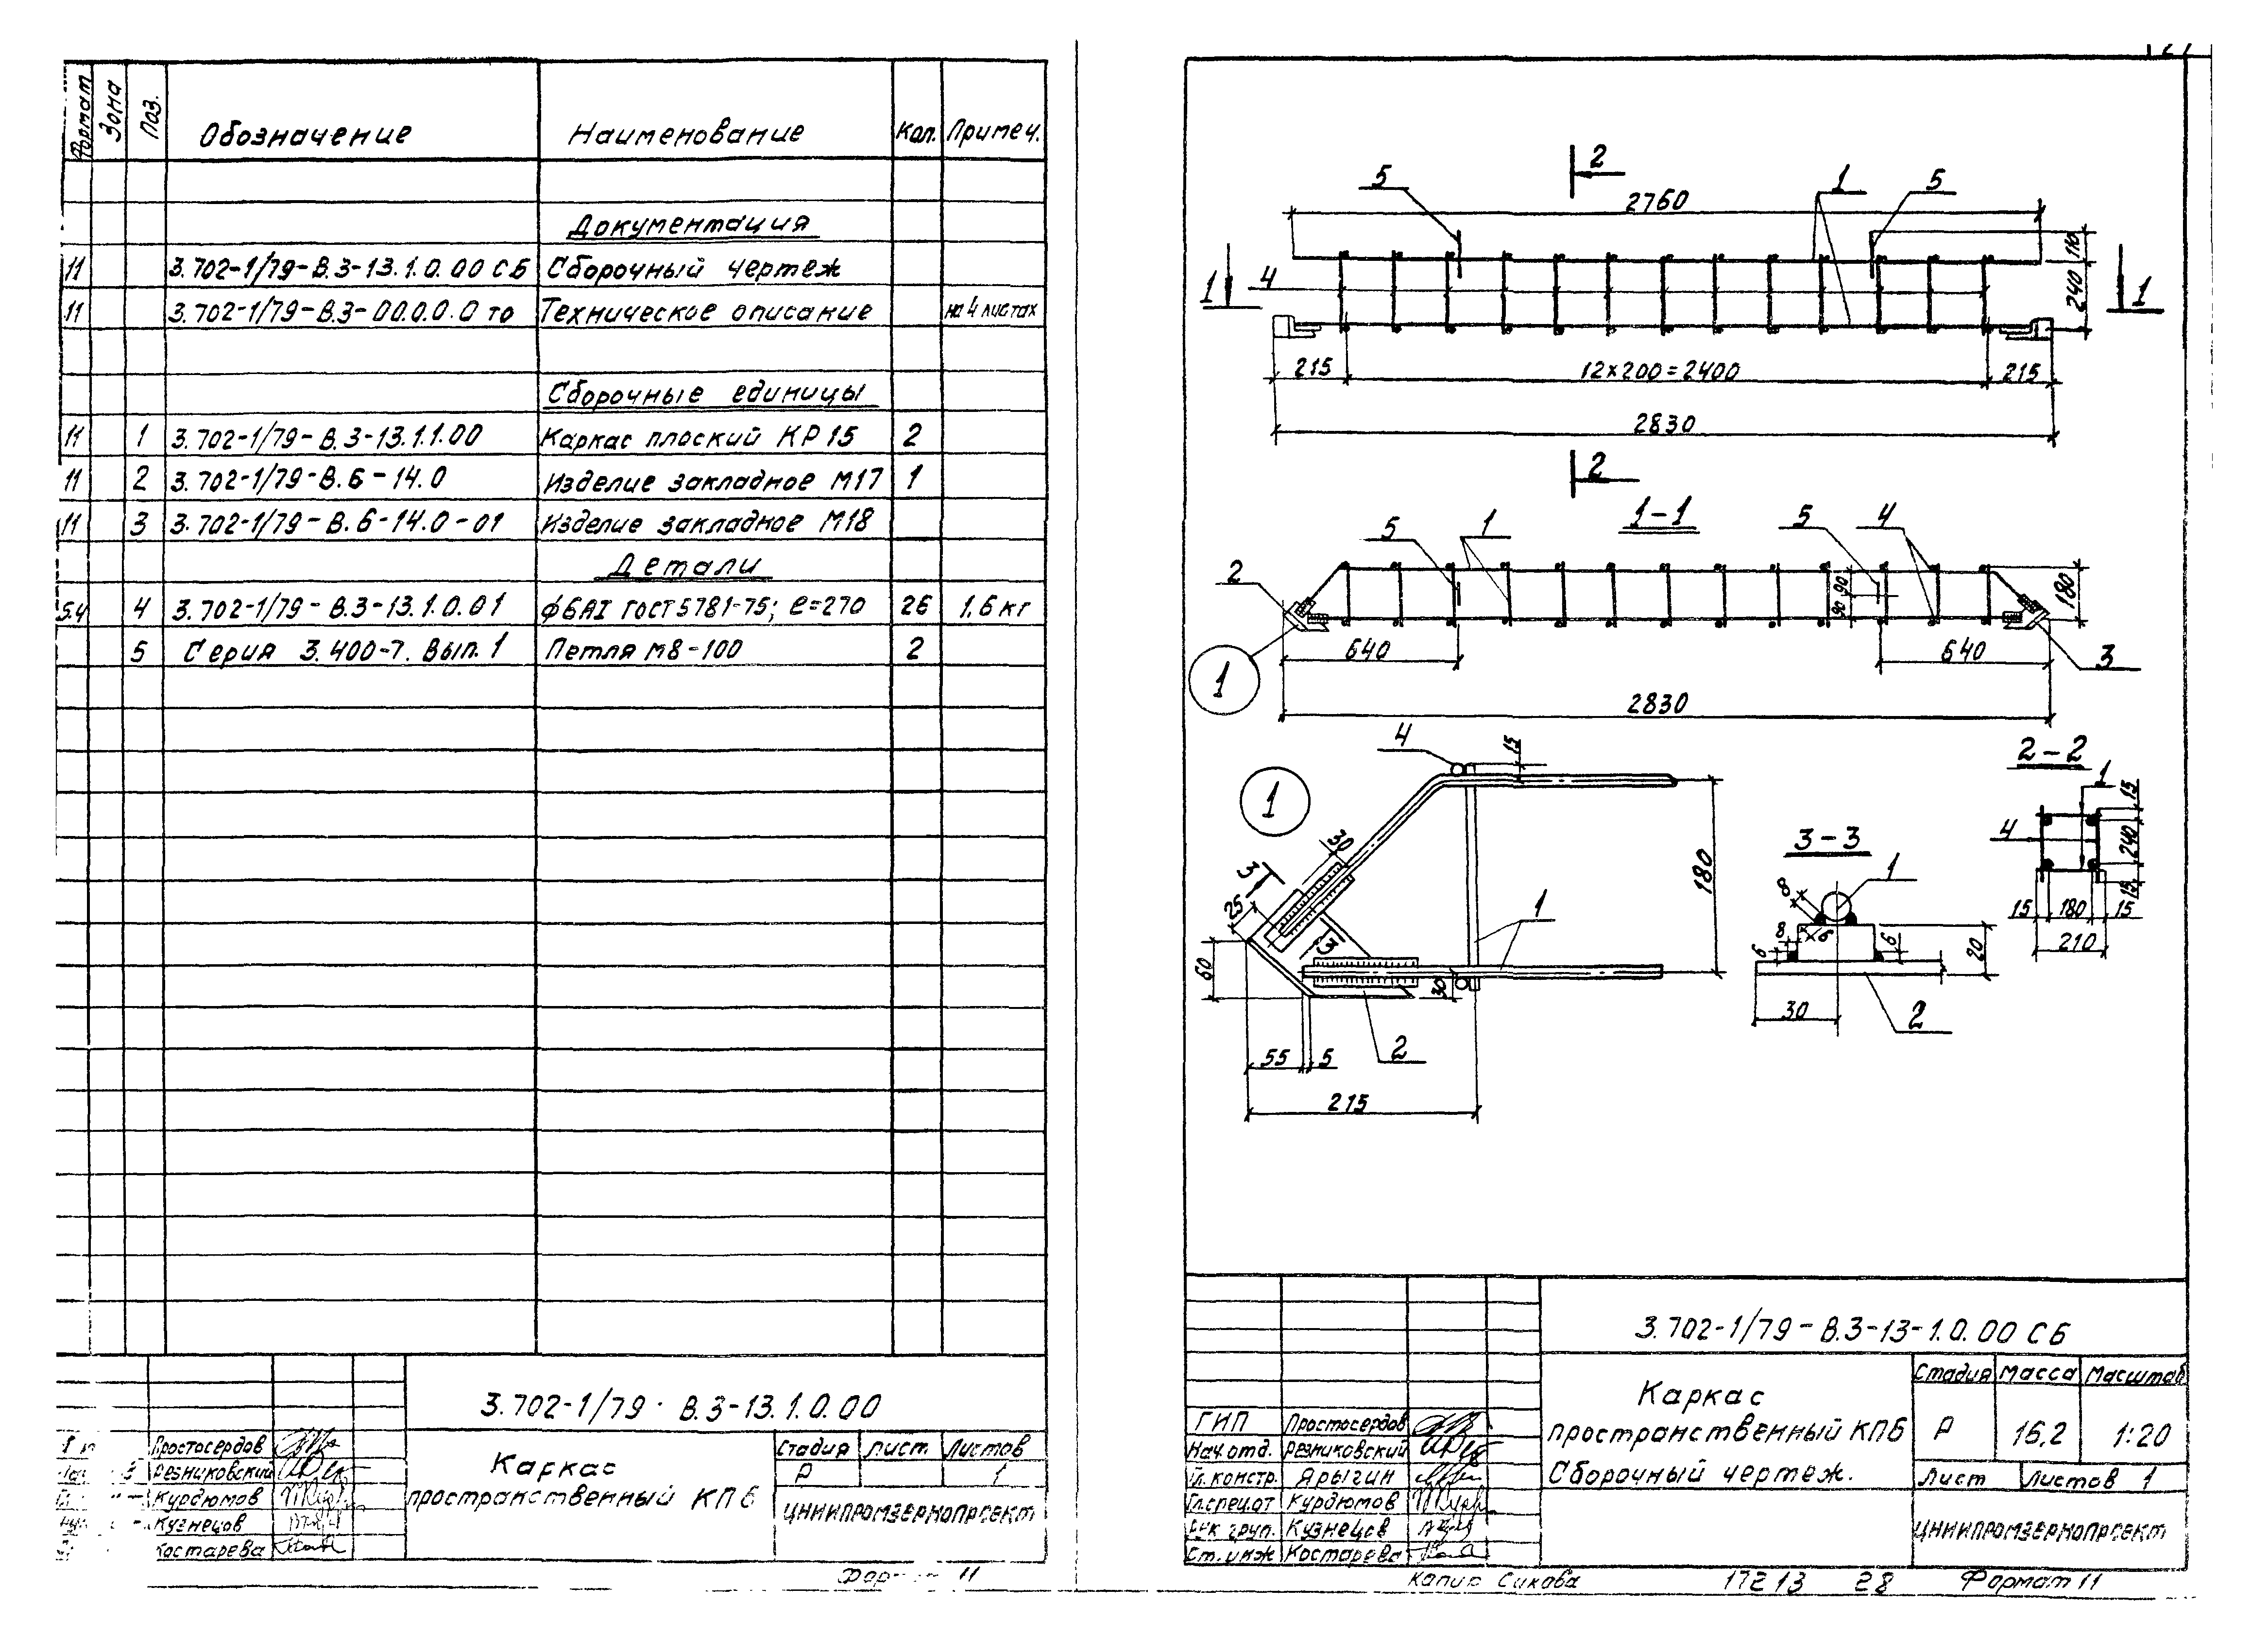 Формат Зона Поз. Обозначение Наименование Кол. Примеч.
Документация
11 3.702-1/79-В.3-13.1.0.00 СБ Сборочный чертеж
11 3.702-1/79-В.3-00.0.0.0 то Техническое описание на 4 листах
Сборочные единицы
11 1 3.702-1/79-В.3-13.1.1.00 Каркас плоский КР15 2
11 2 3.702-1/79-В.6-14.0 Изделие закладное М17 1
11 3 3.702-1/79-В.6-14.0-01 Изделие закладное М18
Детали
5.4 4 3.702-1/79-В.3-13.1.0.01 ф6АI ГОСТ5781-75; ℓ=270 26 1,6 кг
5 Серия 3.400-7. Вып. 1 Петля М8-100 2
3.702-1/79 · В.3-13.1.0.00
Простосердов
Резниковский
Курдюмов
Кузнецов
Костарева
Каркас
пространственный КП6
Стадия Лист Листов
Р 1
ЦНИИПРОМЗЕРНОПРОЕКТ
Формат 11
2
5 1 5
2760
110
1 4 240 1
215 12×200=2400 215
2830
2
1-1
5 1 5 4
2 90 90 180
640 640 3
1
2830
4 15
1
30
3
25
3
60
180
1
30
55 5 2
215
3-3
8 1
8 6
6 6 20
30 2
2-2
1 15
4 240
15
15 180 15
210
3.702-1/79-В.3-13-1.0.00 СБ
ГИП Простосердов
Нач.отд. Резниковский
Гл.констр. Ярыгин
Гл.спец.от Курдюмов
Рук. груп. Кузнецов
Ст. инж Костарева
Каркас
пространственный КП6
Сборочный чертеж.
Стадия Масса Масштаб
Р 16,2 1:20
Лист Листов 1
ЦНИИПРОМЗЕРНОПРОЕКТ
Копир Сикова 17213 28 Формат 11